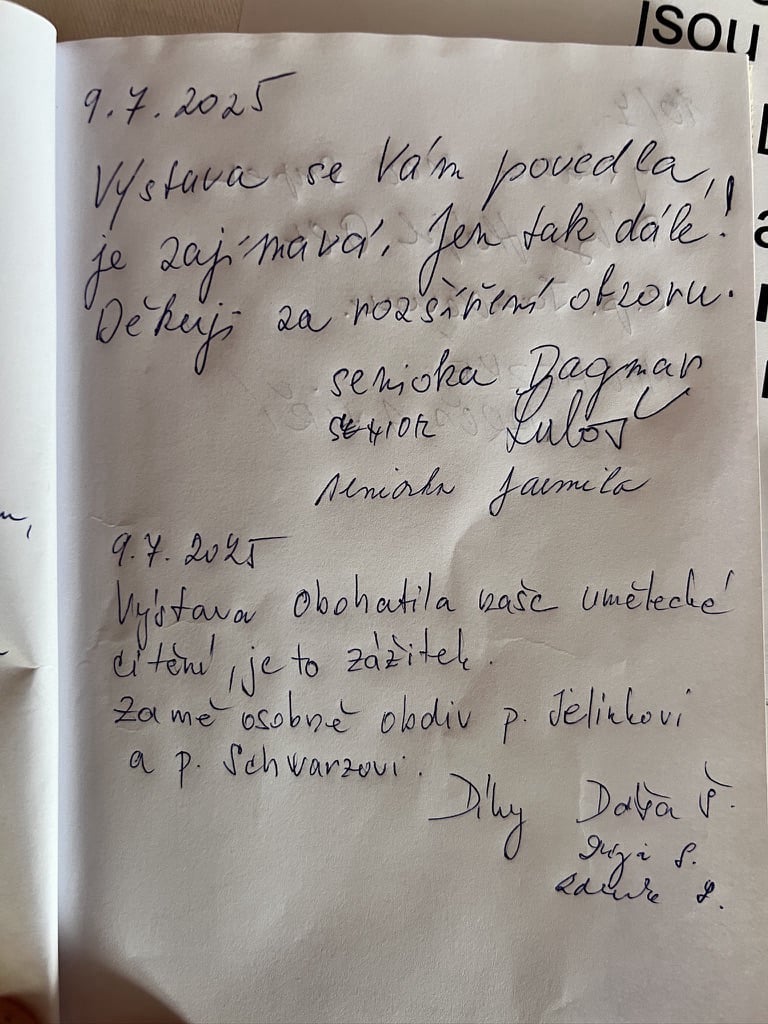 jsou
9.7.2025
Výstava se Vám povedla,
je zajímavá. Jen tak dále!
Děkuji za rozšíření obzoru.
seniorka Dagmar
senior Luboš
seniorka Jarmila
9.7.2025
Výstava obohatila naše umělecké
cítění, je to zážitek.
Za mě osobně obdiv p. Jelínkovi
a p. Schwarzovi.
Díky Daša Š.
S.